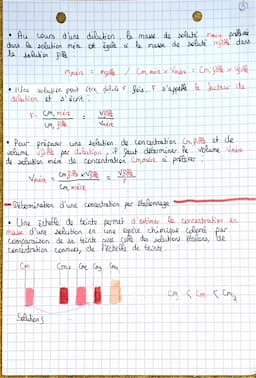 ③
• Au cours d'une dilution, la masse de soluté mmère prélevée
dans la solution mère est égale à la masse de soluté mfille dans
la solution fille
mmère = mfille / Cm, mère x Vmère = Cm, fille x Vfille
• Une solution peut être diluée F fois. F s'appelle le facteur de
dilution et s'écrit :
F = Cm, mère / Cm, fille = Vfille / Vmère
• Pour préparer une solution de concentration Cm, fille et de
volume Vfille par dilution, il faut déterminer le volume Vmère
de solution mère de concentration Cm, mère à prélever
Vmère = Cm, fille x Vfille / Cm, mère = Vfille / F
Détermination d'une concentration par étalonnage
• Une échelle de teinte permet d'estimer la concentration en
masse d'une solution en une espèce chimique colorée par
comparaison de sa teinte avec celle des solutions étalons, de
concentration connues, de l'échelle de teinte.
Cm Cm1 Cm2 Cm3 Cm4
Cm < Cm < Cm2
Solution S